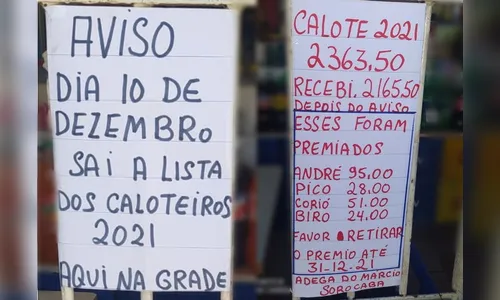 AVISO
DIA 10 DE
DEZEMBRO
SAI A LISTA
DOS CALOTEIROS
2021
AQUI NA GRADE
CALOTE 2021
2363.50
RECEBI. 2165.50
DEPOIS DO AVISO
ESSES FORAM
PREMIADOS
ANDRÉ 95.00
PICO 28.00
CORIÓ 51.00
BIRO 24.00
FAVOR RETIRAR
O PREMIO ATÉ
31-12.21
ADEGA DO MARCIO
SOROCABA